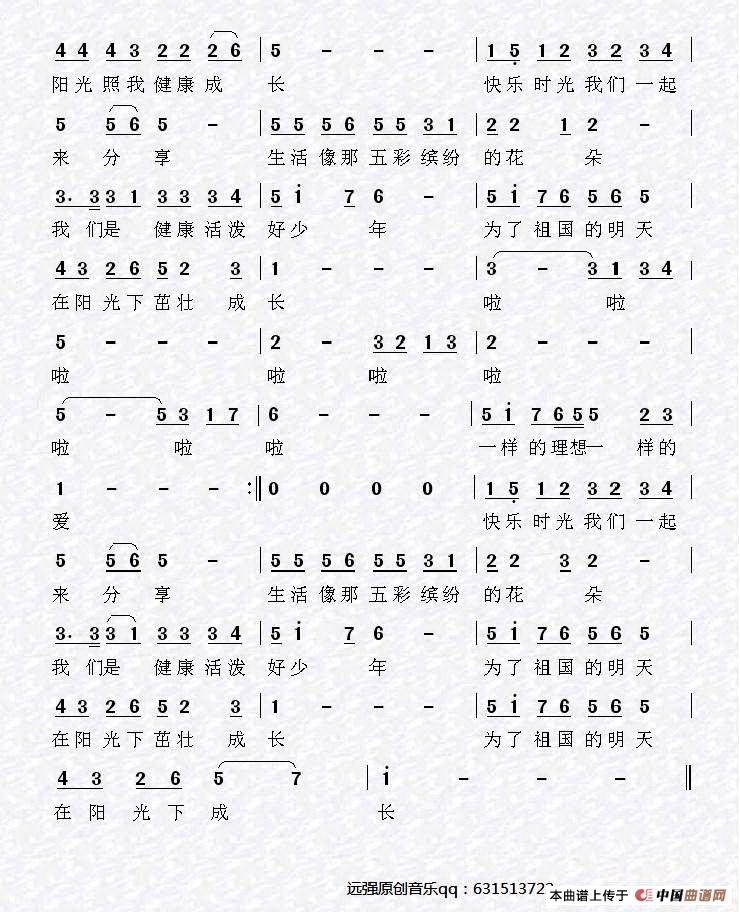 4 4 4 3 2 2 2 6 | 5 - - - | 1 5 1 2 3 2 3 4 |
阳光 照我 健康 成 长 快乐 时光 我们 一起
5 5 6 5 - | 5 5 5 6 5 5 3 1 | 2 2 1 2 - |
来 分 享 生活 像那 五彩 缤纷 的花 朵
3. 3 3 1 3 3 3 4 | 5 i 7 6 - | 5 i 7 6 5 6 5 |
我 们是 健康 活泼 好少 年 为了 祖国 的明 天
4 3 2 6 5 2 3 | 1 - - - | 3 - 3 1 3 4 |
在阳 光下 茁壮 成 长 啦 啦
5 - - - | 2 - 3 2 1 3 | 2 - - - |
啦 啦 啦 啦
5 - 5 3 1 7 | 6 - - - | 5 i 7 6 5 5 2 3 |
啦 啦 啦 一样 的理想一 样的
1 - - - :|| 0 0 0 0 | 1 5 1 2 3 2 3 4 |
爱 快乐 时光 我们 一起
5 5 6 5 - | 5 5 5 6 5 5 3 1 | 2 2 3 2 - |
来 分 享 生活 像那 五彩 缤纷 的花 朵
3. 3 3 1 3 3 3 4 | 5 i 7 6 - | 5 i 7 6 5 6 5 |
我 们是 健康 活泼 好少 年 为了 祖国 的明 天
4 3 2 6 5 2 3 | 1 - - - | 5 i 7 6 5 6 5 |
在阳 光下 茁壮 成 长 为了 祖国 的明 天
4 3 2 6 5 7 | i - - - ||
在 阳 光 下 成 长
远强原创音乐qq：63151372
本曲谱上传于 中国曲谱网